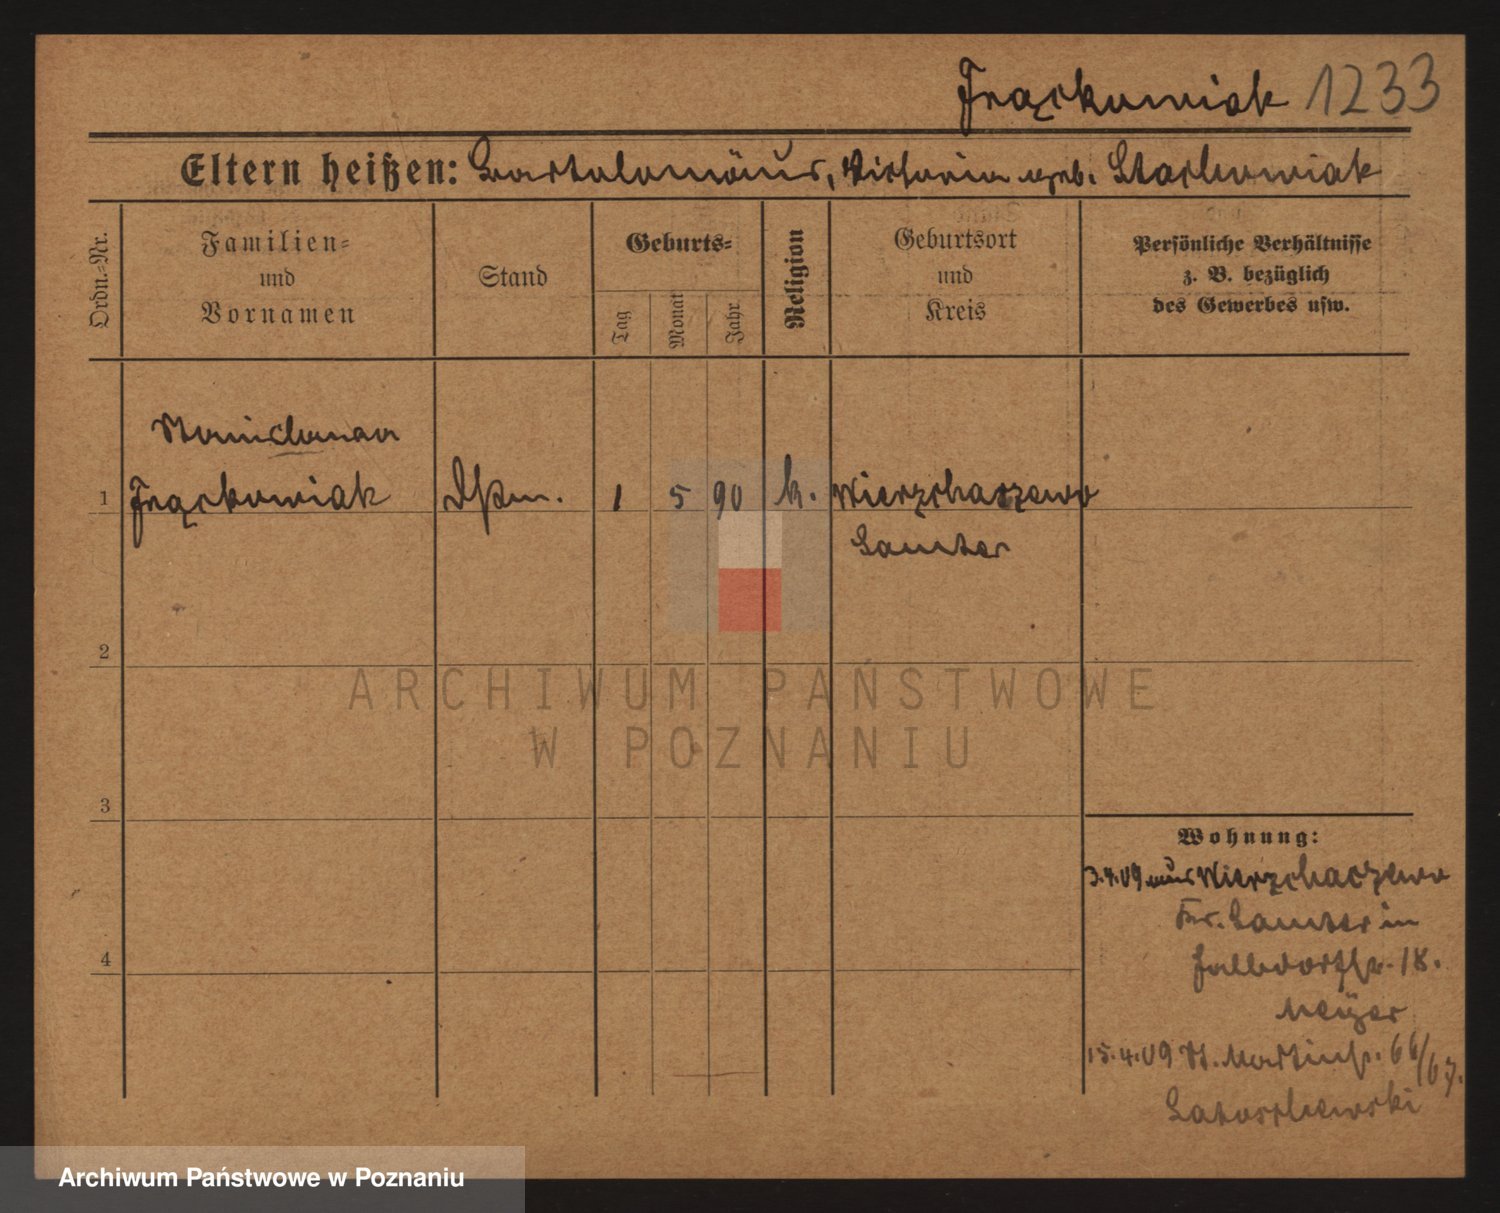 Frąckowiak 1233
Eltern heißen: Bartolomäus, Victoria geb. Stachowiak
Ordn.=Nr.
Familien=
und
Vornamen
Stand
Geburts=
Tag
Monat
Jahr
Religion
Geburtsort
und
Kreis
Persönliche Verhältnisse
z. B. bezüglich
des Gewerbes usw.
Stanislawa
1 Frąckowiak Dstm. 1 5 90 k. Wierzchaczewo
Samter
2
ARCHIWUM PAŃSTWOWE
W POZNANIU
3
Wohnung:
3.4.09 aus Wierzchaczewo
Kr. Samter in
Halbdorfstr. 18.
Meyer
4
15.4.09 St. Martinstr. 66/67.
Archiwum Państwowe w Poznaniu